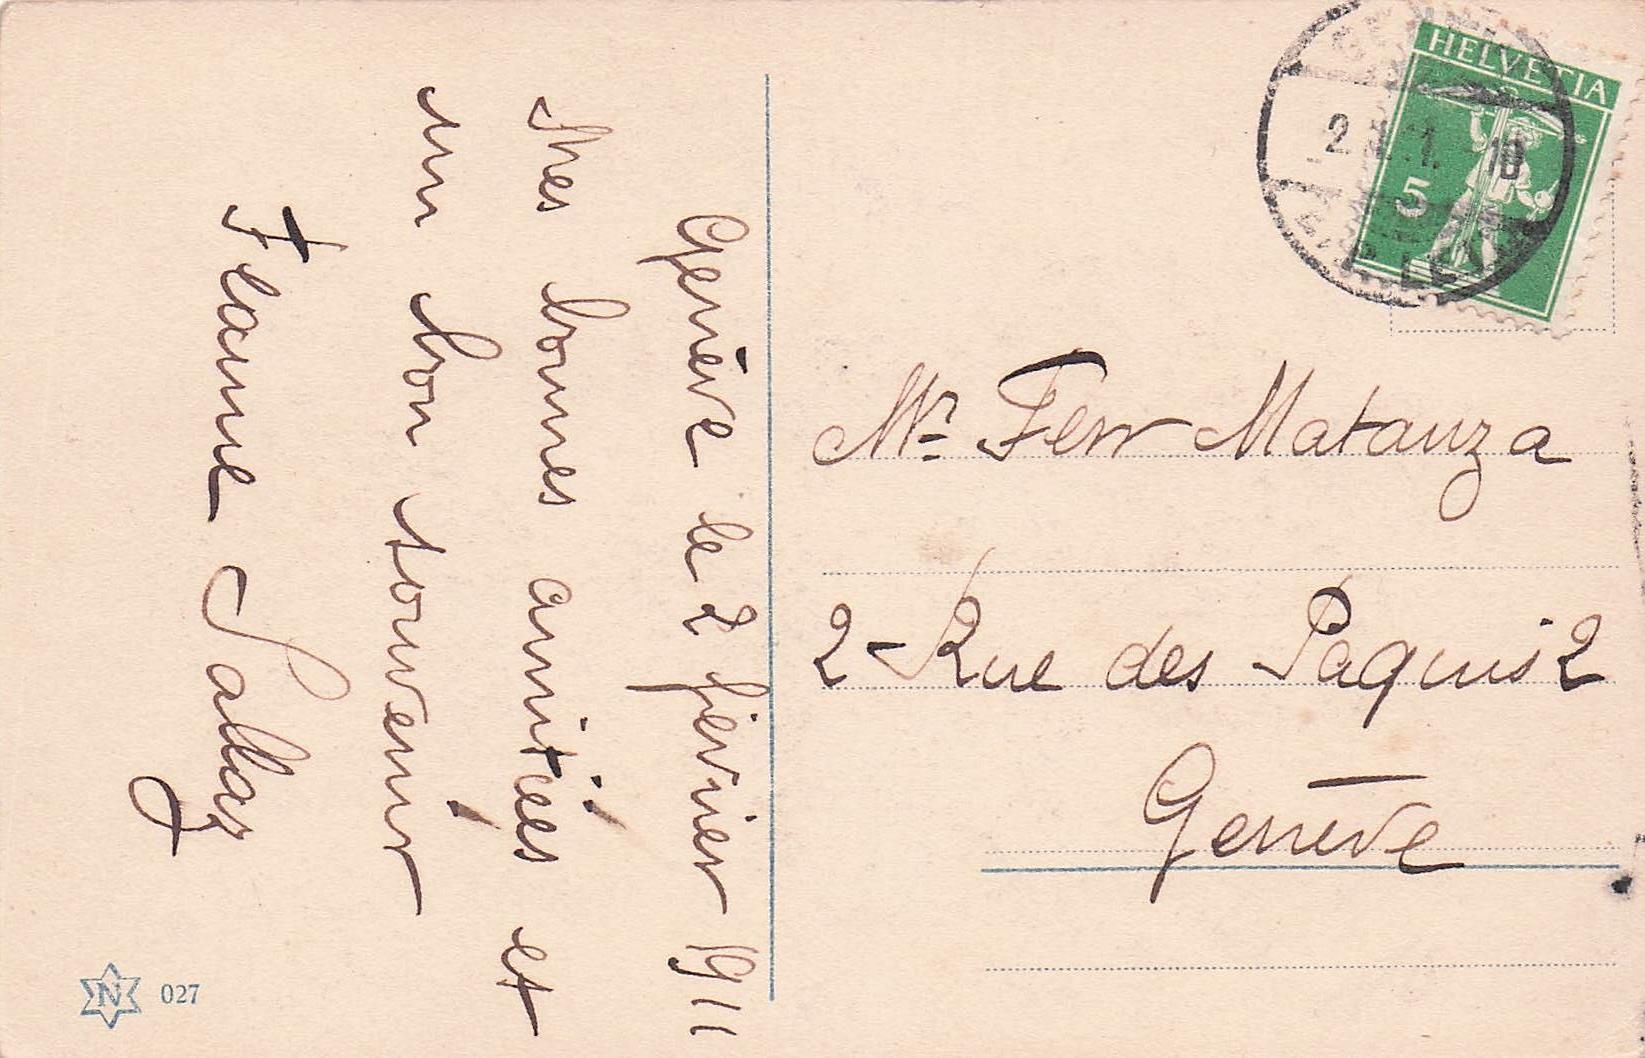 Genève le 2 février 1911
Mes bonnes amitiées et
un bon souvenir
Jeanne Sallaz
HELVETIA
5
Mr Ferr Matanza
2 - Rue des Paquis 2
Genève
N 027